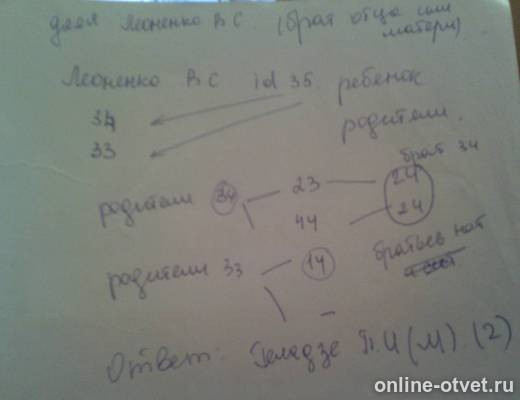 дяля Леоненко В С. (брат отца или
матери)
Леоненко В С id 35. ребенок
34
33
родители.
брат 34
родители 34 23 24
44 24
родители 33 14 братьев нет
Ответ: Геладзе П.И (М) (2)
online-otvet.ru